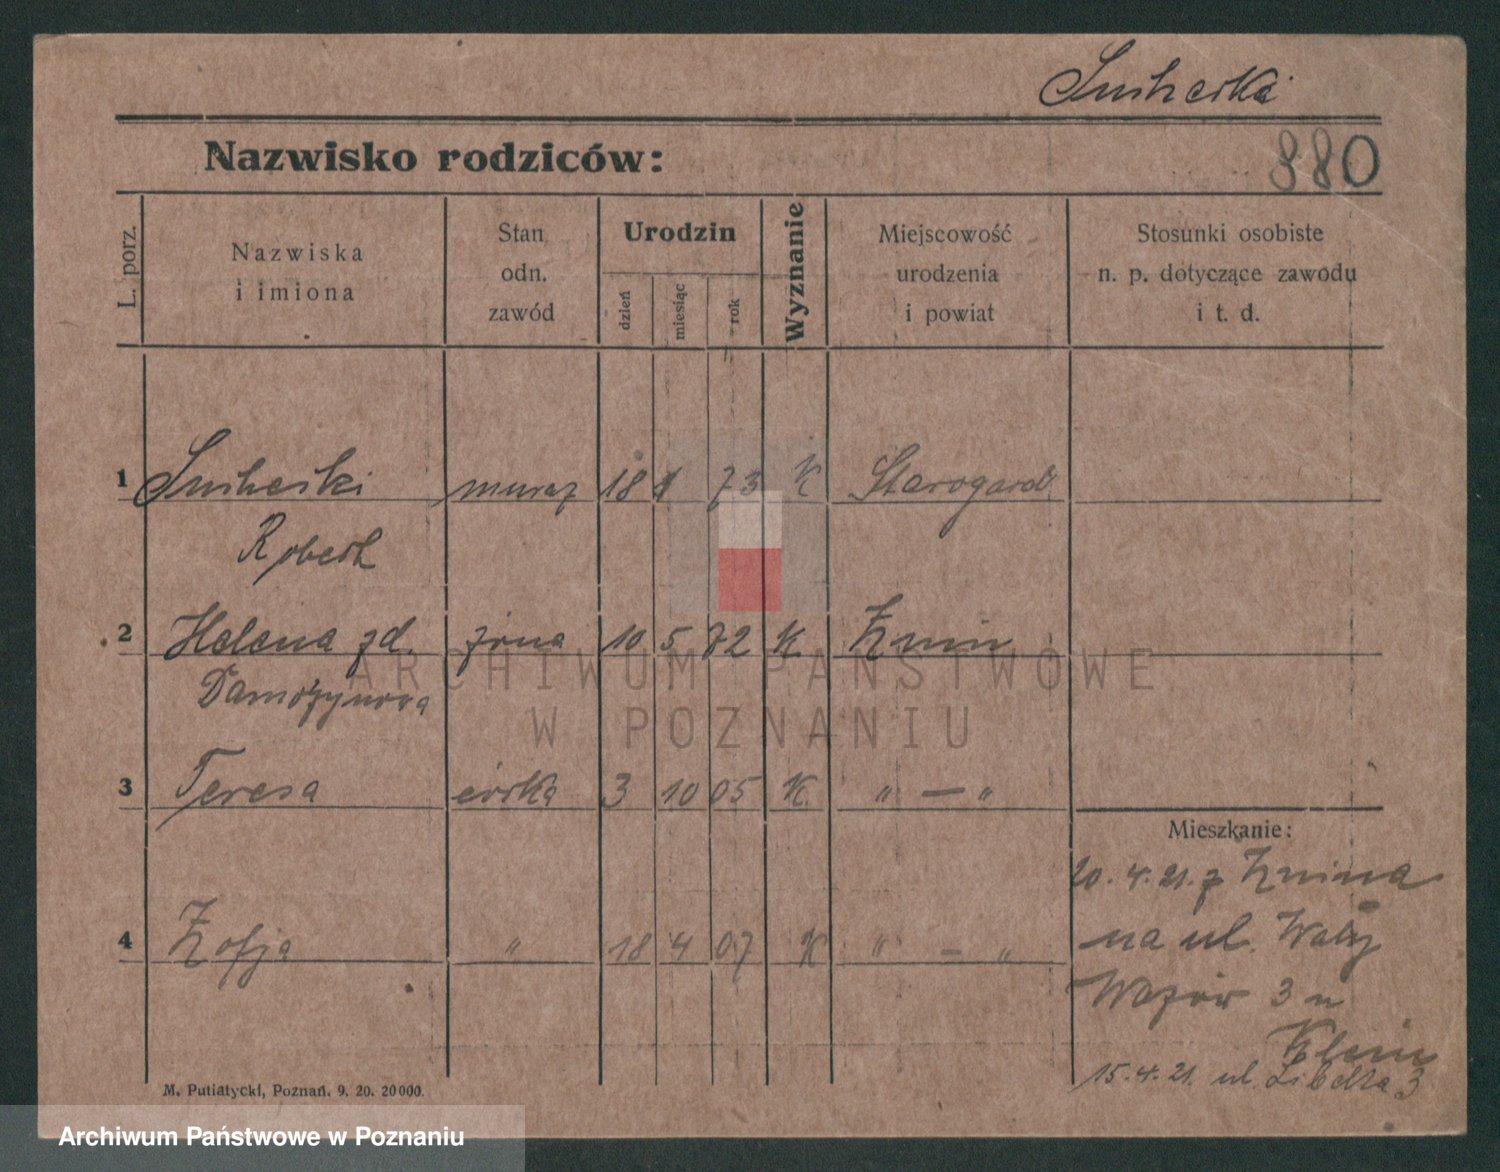 Sucharski
Nazwisko rodziców:
880
L. porz.
Nazwiska
i imiona
Stan
odn.
zawód
Urodzin
dzień
miesiąc
rok
Wyznanie
Miejscowość
urodzenia
i powiat
Stosunki osobiste
n. p. dotyczące zawodu
i t. d.
1 murarz 18 73 K Starogard
Robert
2 Helena zd. żona 10 5 72 K Żnin
3 Teresa córka 3 10 05 K " — "
4 Zofja " 18 4 07 K " — "
Mieszkanie:
20.4.21. z Żnina
na ul. Wały
Wazów 3 u
Klein
15.4.21. ul. Libelta 3
M. Putiatycki, Poznań. 9. 20. 20000.
ARCHIWUM PAŃSTWOWE
W POZNANIU
Archiwum Państwowe w Poznaniu